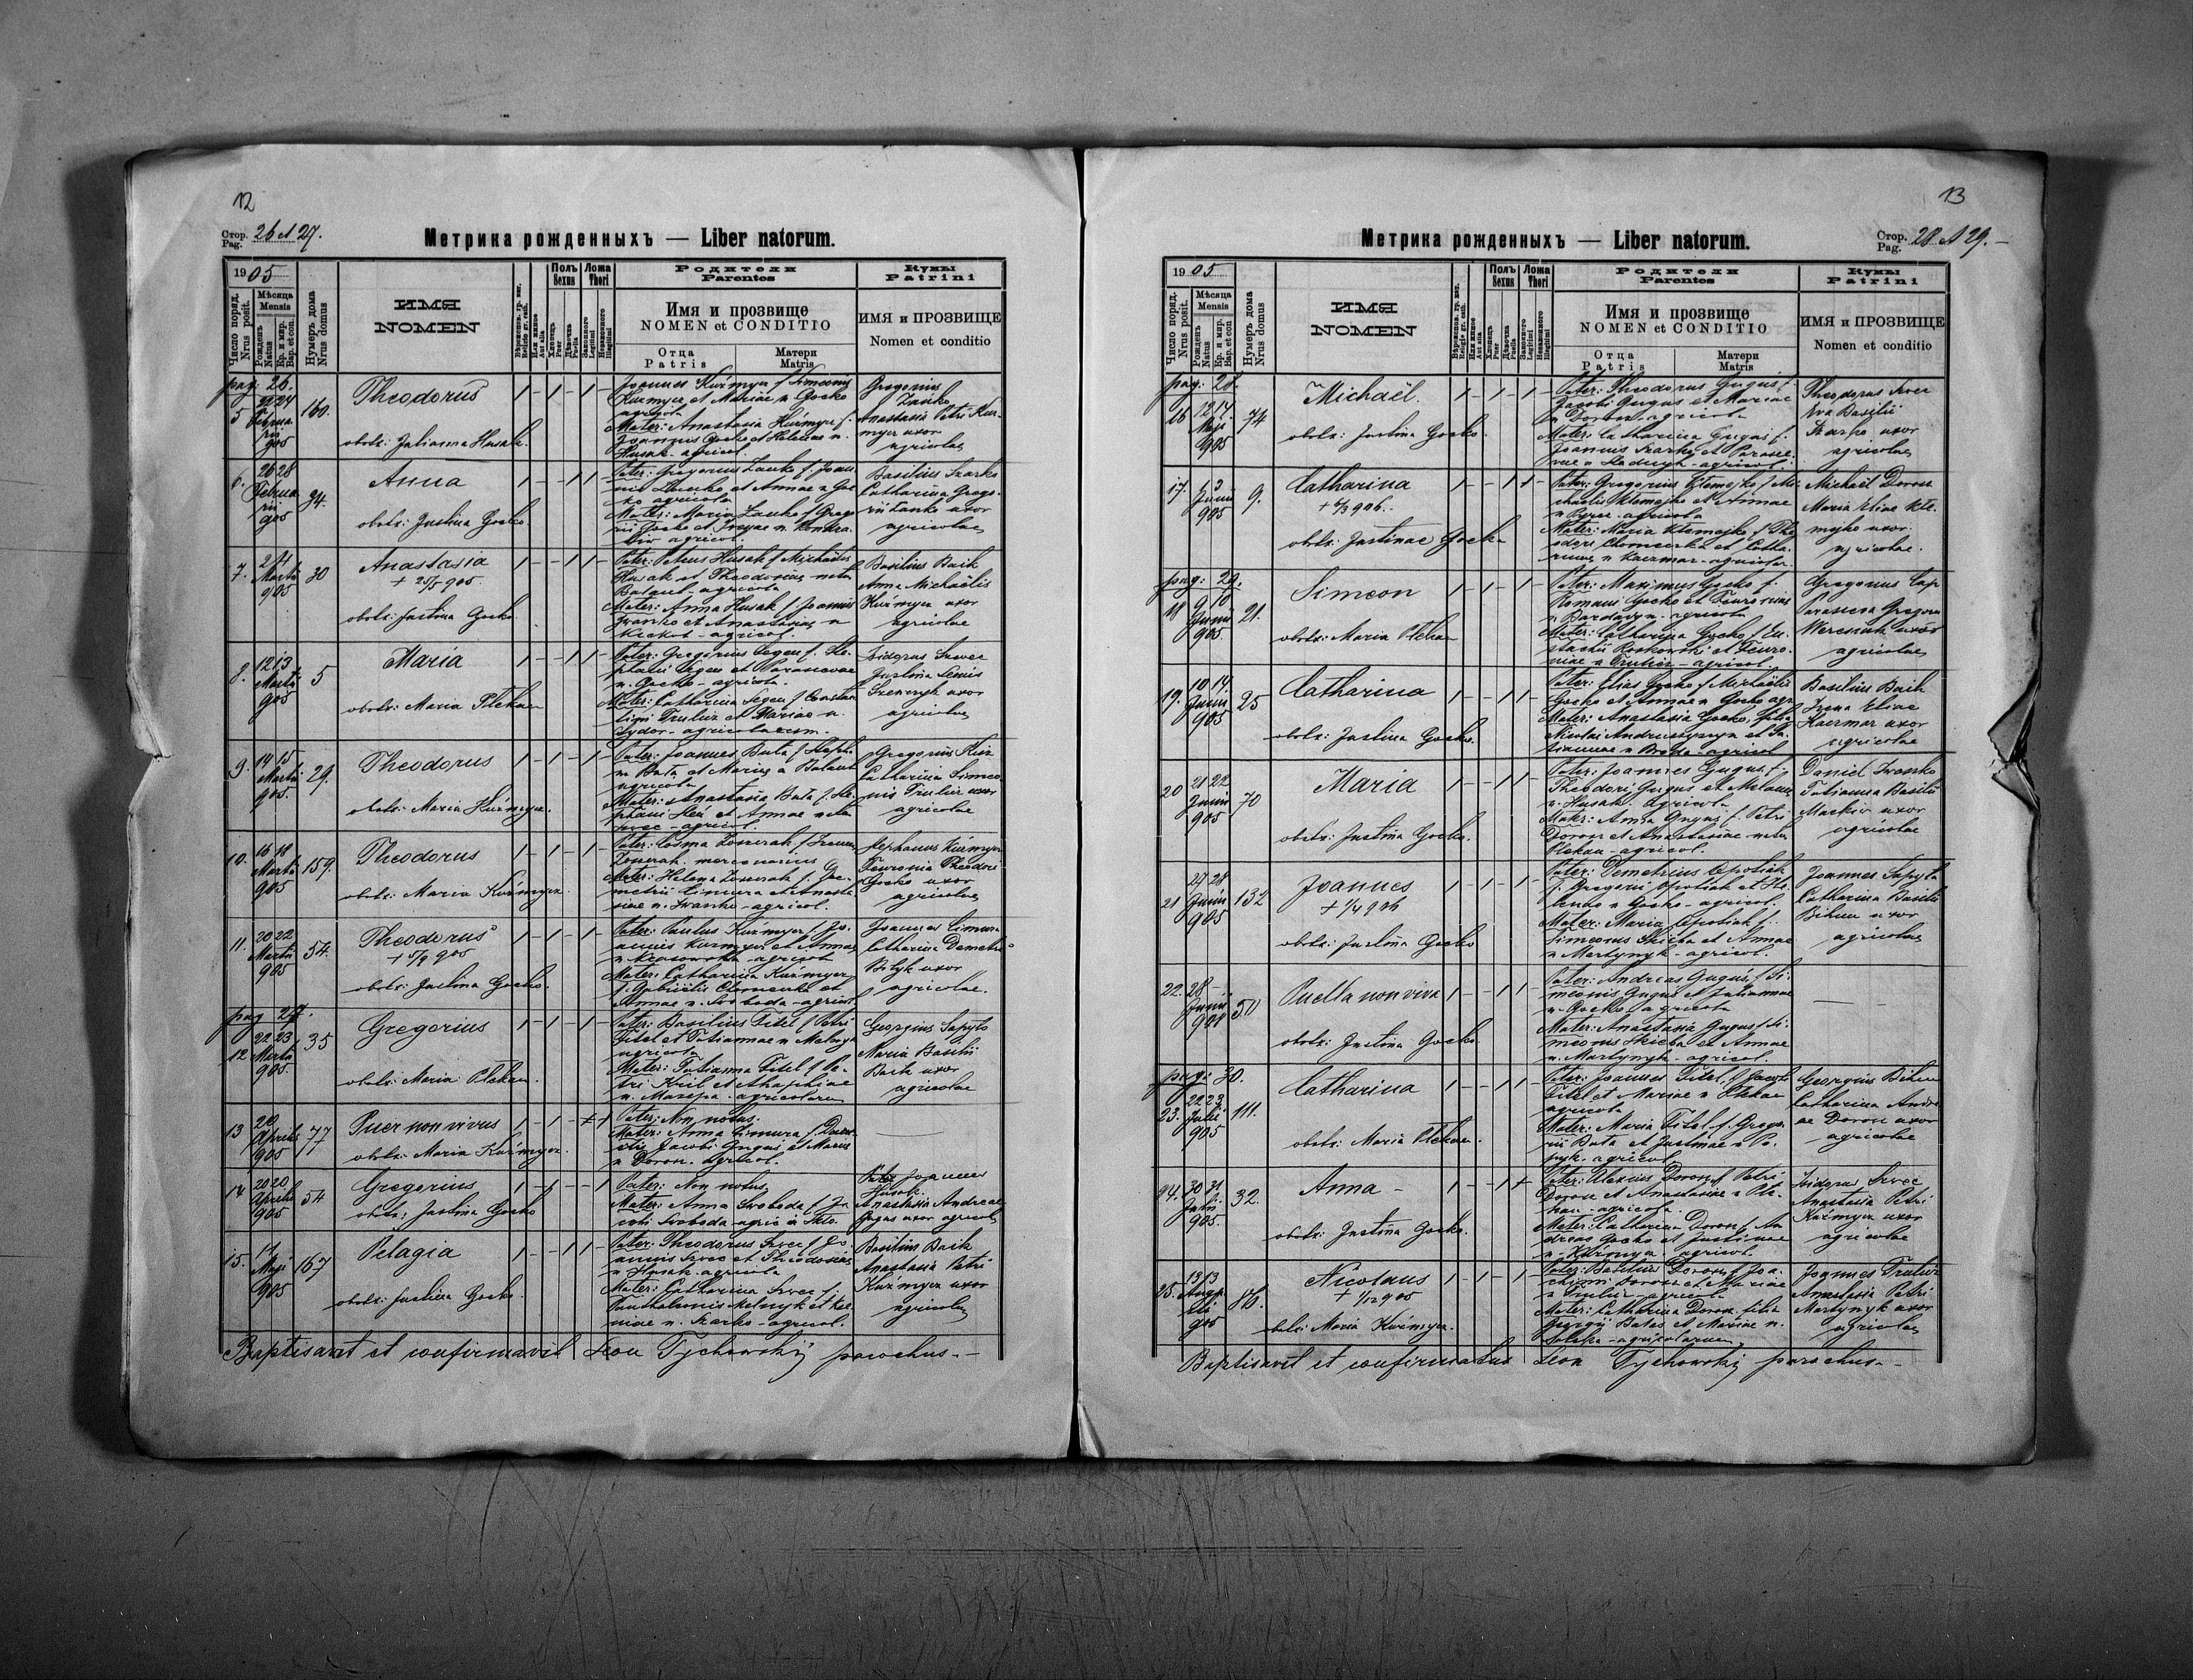 12
Стор. Pag. 26 et 27.
Метрика рожденныхъ — Liber natorum.
1905
Число поряд. Nrus posit.
Мѣсяца Mensis
Рожденъ Natus
Кр. и мѵр. Bap. et con.
Нумеръ дома Nrus domus
ИМЯ
NOMEN
Полъ Sexus
Хлопецъ Puer
Дѣвочка Puella
Ложа Thori
Законного Legitimi
Незаконного Illegitimi
Родители
Parentes
Имя и прозвище
NOMEN et CONDITIO
Отца
Patris
Матери
Matris
Кумы
Patrini
ИМЯ и ПРОЗВИЩЕ
Nomen et conditio
pag. 26.
5 22 24 Februarii 905
160.
Theodorus
obstz: Julianna Husak.
Joannes Kuźmycz f. Simeonis
Kuzmycz et Mariae n. Gocko
agricola
Mater: Anastasia Kuźmycz f.
Joannis Gocko et Helenae n.
Husak - agricol.
Gregorius
Lanko
Anastasia Petri Kuz-
mycz uxor
agricolae
6. 26 28 Februarii 905
94.
Anna
obstz: Justina Gocko
Pater: Gregorius Lanko f. Joan-
nis Lanko et Annae n. Goc-
ko agricola
Mater: Maria Lanko f. Grego-
rii Gocko et
agricol.
Basilius Szarko
Catharina Grego-
rii Lanko uxor
agricolae
7. 2 4 Martii 905
30
Anastasia
+ 25/5 905.
obstz: Justina Gocko.
Pater: Petrus Husak f. Michaëlis
Husak et Theodosiae nata
Balaut - agricola
Mater: Anna Husak f. Joannis
Iwanko et Anastasiae n.
agricol.
Basilius Baik
Anna Michaëlis
Kuźmycz uxor
agricolae
8. 12 13 Martii 905
5
Maria
obstz: Maria Plekan
Pater: Gregorius Segen f. Ste-
phani Segen et Parascevae
n. Gocko - agricola.
Mater: Catharina Segen f. Constan-
tini Trulicz et Mariae n.
Sydor - agricolarum.
Isidorus Szwec
Justina
uxor
agricolae
9. 14 15 Martii 905.
29.
Theodorus
obstz: Maria Kuźmycz.
Pater: Joannes Buta f. Stepha-
ni Buta et Mariae n. Balaut
agricola
Mater: Anastasia Buta f. Ste-
phani et Annae nata
Szwec - agricol.
Gregorius
Catharina Simeo-
nis Trulicz uxor
agricolae
10. 16 18 Martii 905
159.
Theodorus
obstz: Maria Kuźmycz.
Pater: Cosma
mercenarius
Mater: Helena f. De-
metrii Cimura et Anasta-
siae n. Iwanko - agricol.
Stephanus Kuźmycz
Feuronia Theodori
Gocko uxor
agricolae
11. 20 22 Martii 905
54.
Theodorus
+ 5/9 905
obstz: Justina Gocko.
Pater: Paulus Kuzmycz f. Jo-
annis Kuzmycz et Annae
n. Krasowska - agricola
Mater: Catharina Kuźmycz
f. Gabriëlis et
Annae n. Swoboda - agricol.
Joannes Cimura
Catharina Demetrii
Bilyk uxor
agricolae.
pag 27.
12 22 23 Martii 905.
35
Gregorius
obstz: Maria Plekan.
Pater: Basilius Titel f. Petri
Titel et Tatiannae n. Melnyk
agricola
Mater: Tatianna Titel f. Pe-
tri Kril et Ahaphiae
n. Mazepa - agricolarum
Georgius Sapyto
Maria Basilii
Baik uxor
agricolae
13 20 Aprilis 905
77
Puer non vivus
obstz: Maria Kuźmycz.
Pater: Non notus.
Mater: Anna Cimura f.
Jacobi Gugus et Mariae
n. Dorosz. agricol.
14 20 20 Aprilis 905
54
Gregorius
obstz: Justina Gocko
Pater: Non notus
Mater: Anna Swoboda f. Ja-
cobi Swoboda - agric
Joannes
Husak.
Anastasia Andreae
Gugus uxor agricolae
15. 1 1 Maji 905
167
Pelagia
obstz: Justina Gocko.
Pater: Theodorus Szwec f. Jo-
annis Szwec et Theodosiae
n Husak. agricola
Mater: Catharina Szwec f.
Panthaleonis Melnyk et Xe-
niae n. Szarko - agricol.
Basilius Baik
Anastasia Petri
Kuźmycz uxor
agricolae
Baptisavit et confirmavit Leon Tychowskij parochus. —
13
Стор. Pag. 28 et 29. —
Метрика рожденныхъ — Liber natorum.
1905
Число поряд. Nrus posit.
Мѣсяца Mensis
Рожденъ Natus
Кр. и мѵр. Bap. et con
Нумеръ дома Nrus domus
ИМЯ
NOMEN
Полъ Sexus
Хлопецъ Puer
Дѣвочка Puella
Ложа Thori
Законного Legitimi
Незаконного Illegitimi
Родители
Parentes
Имя и прозвище
NOMEN et CONDITIO
Отца
Patris
Матери
Matris
Кумы
Patrini
ИМЯ и ПРОЗВИЩЕ
Nomen et conditio
pag: 28.
16 12 14 Maji 905
74
Michaël.
obstz: Justina Gocko.
Pater: Theodorus Gugus f.
Jacobi Gugus et Mariae
n Dorosz - agricola
Mater: Catharina Gugus f.
Joannis Szarko et Parasce-
vae n Stadnyk - agricol.
Theodorus Szwec
Eva Basilii
Szarko uxor
agricolae
17. 1 3 Junii 905
9.
Catharina
+ 6/3 906.
obstz: Justinae Gocko
Pater: Gregorius Klemejko f. Mi-
chaëlis Klemejko et Annae
agricola
Mater: Maria Klemejko f. The-
odori et Catha-
rinae n Kaczmar - agricolar.
Michaël Dorosz
Maria Eliae Kle-
mejko uxor.
agricolae.
pag: 29.
18 9 10 Junii 905.
21.
Simeon
obstz: Maria Plekan
Pater: Maximus Gocko f.
Romani Gocko et Feuroniae
agricola
Mater: Catharina Gocko f. Eu-
stachii Koskowski et Feuro-
niae n Trulicz - agricol.
Gregorius Cap
Parasceva Gregorii
uxor
agricolae
19. 10 14 Junii 905
25
Catharina
obstz: Justina Gocko.
Pater: Elias Gocko f. Michaëlis
Gocko et Annae n Gocko agr.
Mater: Anastasia Gocko, filia
Nicolai et Ta-
tiannae n Broda - agricol
Basilius Baik
Irena Eliae
Kaczmar uxor
agricolae
20 21 22 Junii 905
70
Maria
obstz: Justina Gocko.
Pater: Joannes Gugus f.
Theodori Gugus et Melaniae
n. Husak. agricola
Mater: Anna Gugus f. Petri
Dorosz et Anastasiae nata
Plekan - agricol.
Daniel Iwasko
Tatianna Basilii
Mackiw uxor
agricolae
21 27 28 Junii 905
132
Joannes
+ 1/4 906
obstz: Justina Gocko
Pater: Demetrius Opotiak
f. Gregorii Opotiak et He-
lenae n Gocko - agricol.
Mater: Maria Opotiak f.
Simeonis Skiba et Annae
n Martynyk - agricol.
Joannes Sapyto
Catharina Basilii
Bihun uxor
agricolae
22. 28 Junii
50
Puella non viva
obstz: Justina Gocko.
Pater: Andreas Gugus f. Si-
meonis Gugus et Juliannae
n. Gocko agricola
Mater: Anastasia Gugus f. Si-
meonis Skiba et Annae
n. Martynyk - agricol.
pag: 30.
23. 22 23 Julii 905
111.
Catharina
obstz: Maria Plekan.
Pater: Joannes Titel, f. Jacobi
Titel et Mariae n Plekan
agricola
Mater: Maria Titel f. Grego-
rii Buta et Justinae n
agricol.
Georgius Bihun
Catharina Andre-
ae Dorosz uxor
agricolae
24. 30 31 Julii 905.
32.
Anna -
obstz: Justina Gocko.
Pater: Alexius Dorosz f. Petri
Dorosz et Anastasiae n Ple-
kan - agricola.
Mater: Catharina Dorosz f. An-
dreas Gocko et Justinae
n. Kuzmycz. agricol.
Isidorus Szwec
Anastasia Petri
Kuźmycz uxor
agricolae
25. 13 13 905
86.
Nicolaus
+ 1/12 905
obstz: Maria Kuźmycz.
Pater: Basilius Dorosz f. Joa-
chimi Dorosz et Mariae
n Trulicz - agricola
Mater: Catharina Dorosz filia
Georgii Butas et Mariae n.
agricolarum
Joannes Trulicz
Anastasia Petri
Martynyk uxor
agricolae
Baptisavit et confirmatus Leon Tychowskij parochus. —